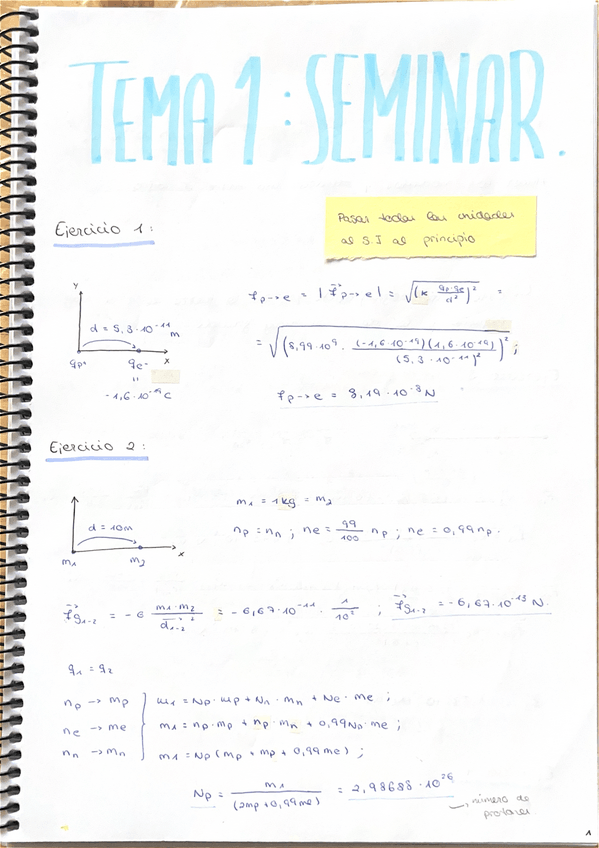 TEMA 1: SEMINAR.
Pasar todas las unidades
al S.I al principio
Ejercicio 1:
Y
d = 5,3·10⁻¹¹ m
X
qp+ qe-
"
-1,6·10⁻¹⁹ C
Fp→e = |F⃗p→e| = √(K qp·qe/d²)² =
= √(8,99·10⁹ · (-1,6·10⁻¹⁹)(1,6·10⁻¹⁹)/(5,3·10⁻¹¹)²)² ;
Fp→e = 8,19·10⁻⁸ N
Ejercicio 2:
m1 = 1kg = m2
np = nn ; ne = 99/100 np ; ne = 0,99np.
d = 10m
x
m1 m2
F⃗g1-2 = -G m1·m2/d1-2² = -6,67·10⁻¹¹ · 1/10² ; F⃗g1-2 = -6,67·10⁻¹³ N.
q1 = q2
np → mp
ne → me
nn → mn
m1 = Np·mp + Nn·mn + Ne·me ;
m1 = np·mp + np·mn + 0,99Np·me ;
m1 = Np(mp + mp + 0,99me) ;
Np = m1/(2mp + 0,99me) = 2,98688·10²⁶
número de
protones
1